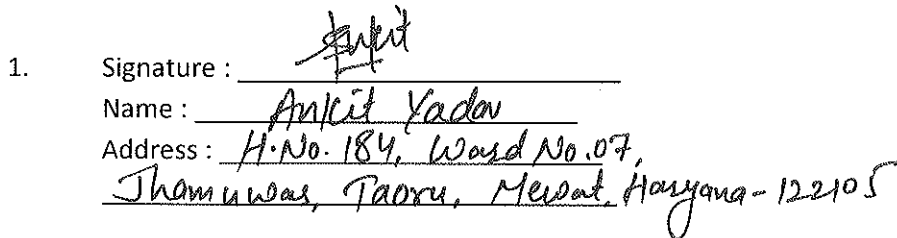 1. Signature : Ankit
Name : Ankit Yadav
Address : H.No. 184, Ward No.07,
Jhamuwas, Taoru, Mewat, Haryana-122105